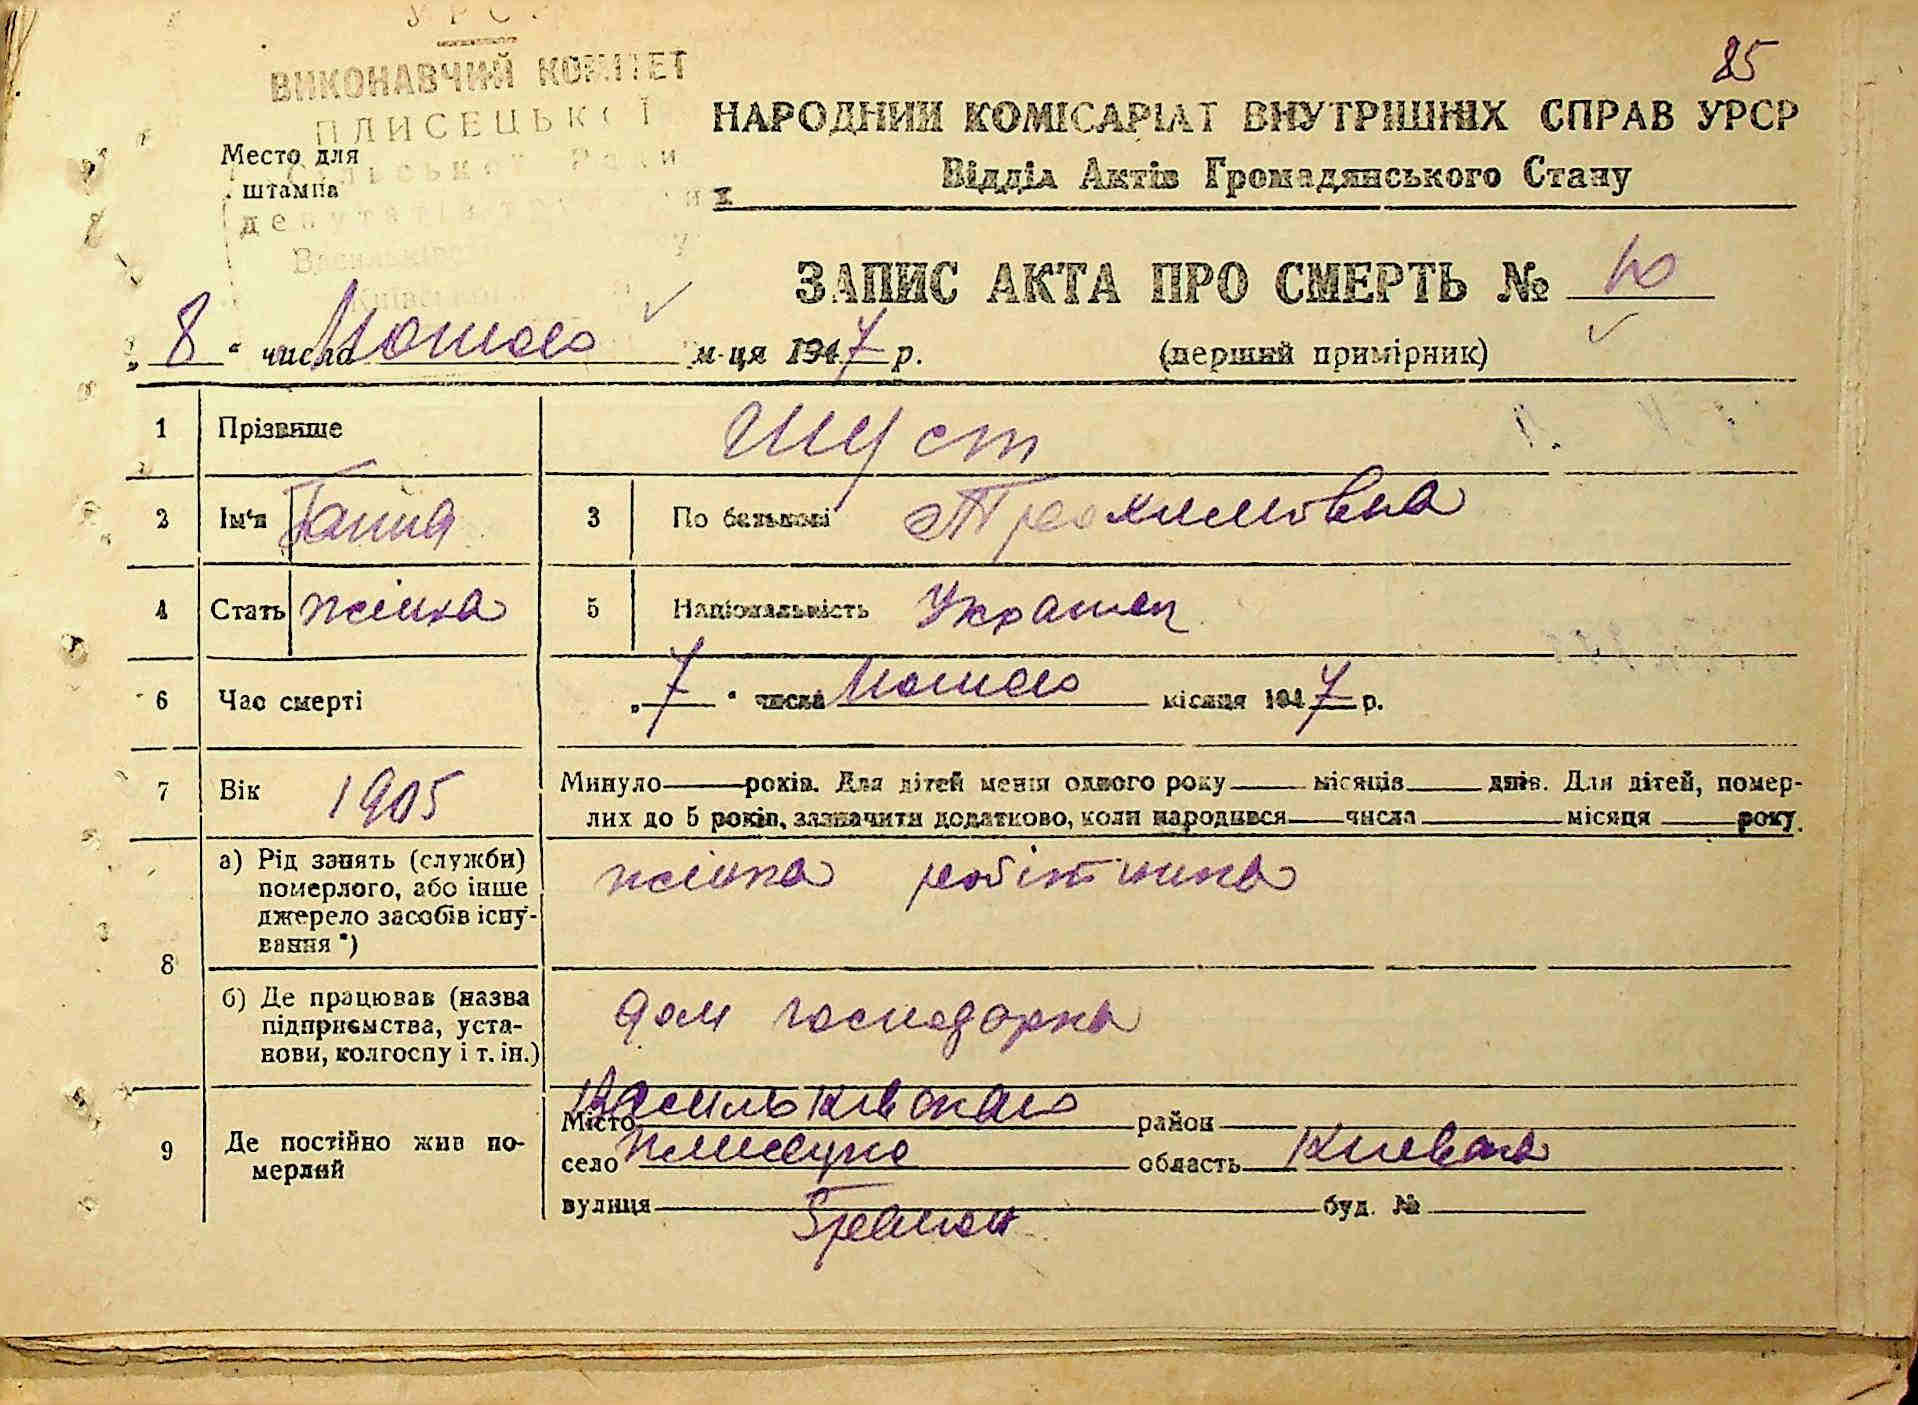 УРСР
ВИКОНАВЧИЙ КОМІТЕТ
ПЛИСЕЦЬКОЇ
Сільської Ради
депутатів
85
НАРОДНИЙ КОМІСАРІАТ ВНУТРІШНІХ СПРАВ УРСР
Відділ Актів Громадянського Стану
Место для
штампа
ЗАПИС АКТА ПРО СМЕРТЬ № 10
„ 8 “ числа м-ця 1947 р.
(перший примірник)
1 Прізвище Шуст
2 Ім'я Ганна 3 По батькові Трохимовна
4 Стать жінка 5 Національність Украинец
6 Час смерті „ 7 “ числа місяця 1947 р.
7 Вік 1905 Минуло років. Для дітей менш одного року місяців днів. Для дітей, помер-
лих до 5 років, зазначити додатково, коли народився числа місяця року.
8 а) Рід занять (служби)
померлого, або інше
джерело засобів існу-
вання *)
жінка робітника
б) Де працював (назва
підприємства, уста-
нови, колгоспу і т. ін.)
дом господорка
9 Де постійно жив по-
мерлий
Місто Васильківского район
село Плисецке область Киевска
вулиця буд. №